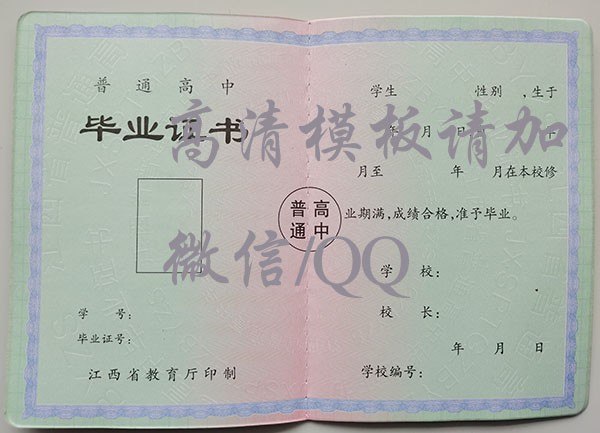 普通高中
毕业证书
学号:
毕业证号:
江西省教育厅印制
普高
通中
学生 性别 ,生于
年 月 日
月至 年 月在本校修
业期满,成绩合格,准予毕业。
学校:
校长:
年 月 日
学校编号:
高清模板请加
微信/QQ